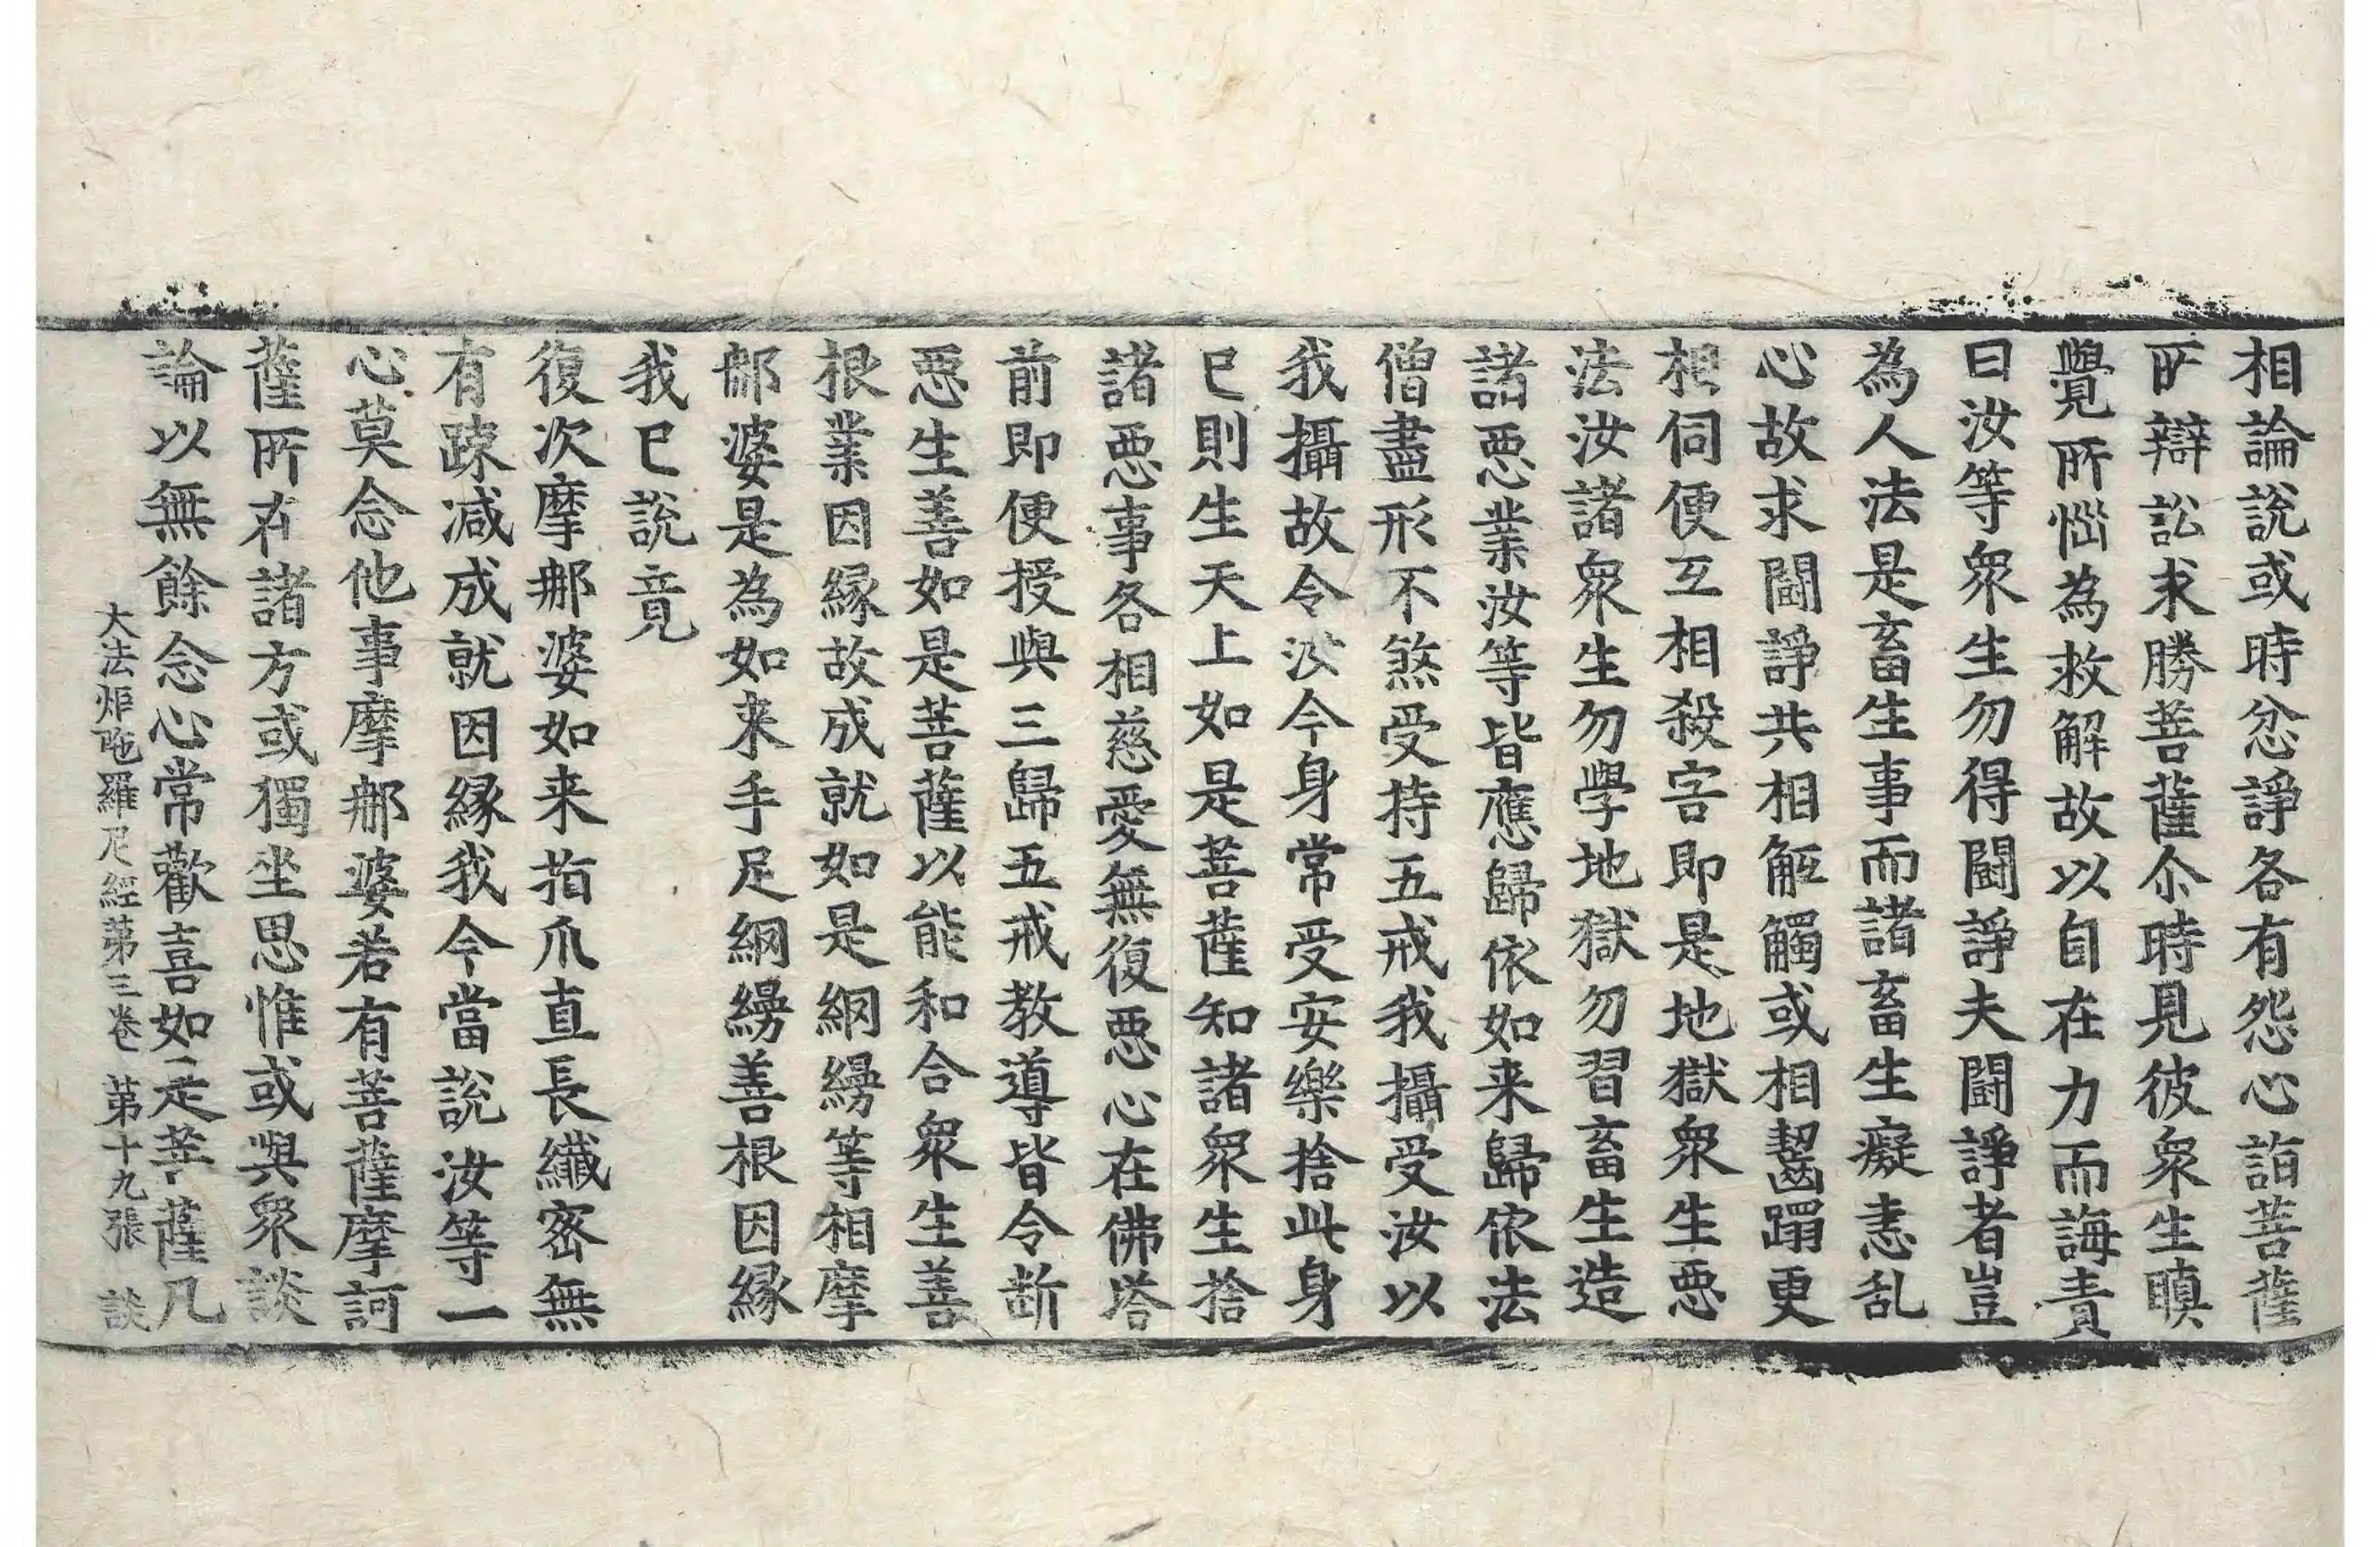 相論說或時忿諍各有怨心詣菩薩
所辯訟求勝菩薩尒時見彼衆生瞋
覺所惱為救解故以自在力而誨責
曰汝等衆生勿得鬪諍夫鬪諍者豈
為人法是畜生事而諸畜生癡恚乱
心故求鬪諍共相觝觸或相齧蹋更
相伺便互相殺害即是地獄衆生惡
法汝諸衆生勿學地獄勿習畜生造
諸惡業汝等皆應歸依如来歸依法
僧盡形不煞受持五戒我攝受汝以
我攝故令汝今身常受安樂捨此身
已則生天上如是菩薩知諸衆生捨
諸惡事各相慈愛無復惡心在佛塔
前即便授與三歸五戒教導皆令断
惡生善如是菩薩以能和合衆生善
根業因縁故成就如是網縵等相摩
那婆是為如来手足網縵善根因縁
我已說竟
復次摩那婆如来指爪直長纖密無
有踈減成就因縁我今當說汝等一
心莫念他事摩那婆若有菩薩摩訶
薩所在諸方或獨坐思惟或與衆談
論以無餘念心常歡喜如是菩薩凡
大法炬陁羅尼經第三卷 第十九張 談